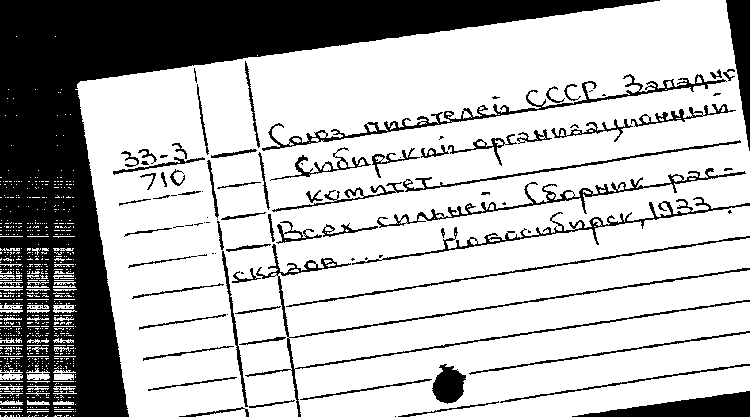 33-3
710
Союз писателей СССР. Западно
Сибирский организационный
комитет.
Всех сильней. Сборник рас-
сказов ... Новосибирск, 1933.